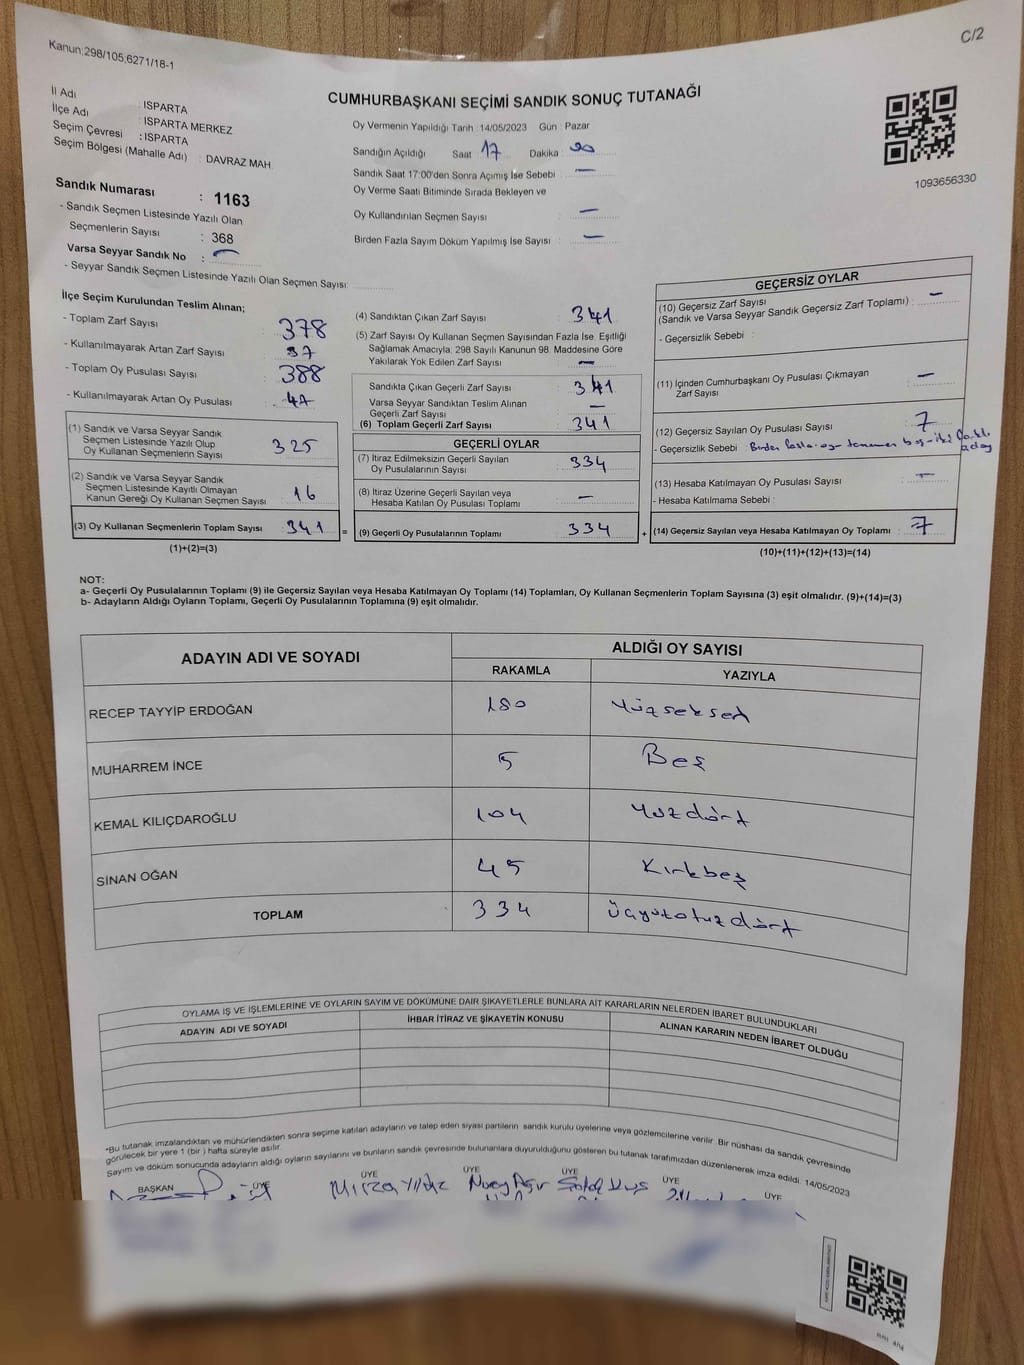 Kanun:298/105,6271/18-1
C/2
CUMHURBAŞKANI SEÇİMİ SANDIK SONUÇ TUTANAĞI
İl Adı : ISPARTA
İlçe Adı : ISPARTA MERKEZ
Seçim Çevresi : ISPARTA
Seçim Bölgesi (Mahalle Adı) : DAVRAZ MAH
Oy Vermenin Yapıldığı Tarih :14/05/2023 Gün : Pazar
Sandığın Açıldığı Saat 17 Dakika
Sandık Saat 17:00'den Sonra Açımış İse Sebebi : —
Oy Verme Saati Bitiminde Sırada Bekleyen ve
Oy Kullandırılan Seçmen Sayısı —
Birden Fazla Sayım Döküm Yapılmış İse Sayısı : —
1093656330
Sandık Numarası : 1163
- Sandık Seçmen Listesinde Yazılı Olan
Seçmenlerin Sayısı : 368
Varsa Seyyar Sandık No : —
- Seyyar Sandık Seçmen Listesinde Yazılı Olan Seçmen Sayısı:
İlçe Seçim Kurulundan Teslim Alınan;
- Toplam Zarf Sayısı : 378
- Kullanılmayarak Artan Zarf Sayısı : 37
- Toplam Oy Pusulası Sayısı : 388
- Kullanılmayarak Artan Oy Pusulası : 47
(1) Sandık ve Varsa Seyyar Sandık
Seçmen Listesinde Yazılı Olup
Oy Kullanan Seçmenlerin Sayısı 325
(2) Sandık ve Varsa Seyyar Sandık
Seçmen Listesinde Kayıtlı Olmayan
Kanun Gereği Oy Kullanan Seçmen Sayısı 16
(3) Oy Kullanan Seçmenlerin Toplam Sayısı 341 =
(1)+(2)=(3)
(4) Sandıktan Çıkan Zarf Sayısı : 341
(5) Zarf Sayısı Oy Kullanan Seçmen Sayısından Fazla İse, Eşitliği
Sağlamak Amacıyla; 298 Sayılı Kanunun 98. Maddesine Göre
Yakılarak Yok Edilen Zarf Sayısı : —
Sandıkta Çıkan Geçerli Zarf Sayısı : 341
Varsa Seyyar Sandıktan Teslim Alınan
Geçerli Zarf Sayısı : —
(6) Toplam Geçerli Zarf Sayısı : 341
GEÇERLİ OYLAR
(7) İtiraz Edilmeksizin Geçerli Sayılan
Oy Pusulalarının Sayısı : 334
(8) İtiraz Üzerine Geçerli Sayılan veya
Hesaba Katılan Oy Pusulası Toplamı : —
(9) Geçerli Oy Pusulalarının Toplamı : 334 +
GEÇERSİZ OYLAR
(10) Geçersiz Zarf Sayısı
(Sandık ve Varsa Seyyar Sandık Geçersiz Zarf Toplamı) : —
- Geçersizlik Sebebi :
(11) İçinden Cumhurbaşkanı Oy Pusulası Çıkmayan
Zarf Sayısı : —
(12) Geçersiz Sayılan Oy Pusulası Sayısı : 7
- Geçersizlik Sebebi : Birden fazla oy- tamamen boş-iki farklı
aday
(13) Hesaba Katılmayan Oy Pusulası Sayısı : —
- Hesaba Katılmama Sebebi :
(14) Geçersiz Sayılan veya Hesaba Katılmayan Oy Toplamı : 7
(10)+(11)+(12)+(13)=(14)
NOT:
a- Geçerli Oy Pusulalarının Toplamı (9) ile Geçersiz Sayılan veya Hesaba Katılmayan Oy Toplamı (14) Toplamları, Oy Kullanan Seçmenlerin Toplam Sayısına (3) eşit olmalıdır. (9)+(14)=(3)
b- Adayların Aldığı Oyların Toplamı, Geçerli Oy Pusulalarının Toplamına (9) eşit olmalıdır.
ADAYIN ADI VE SOYADI ALDIĞI OY SAYISI
RAKAMLA YAZIYLA
RECEP TAYYİP ERDOĞAN 180 Yüzseksen
MUHARREM İNCE 5 Beş
KEMAL KILIÇDAROĞLU 104 Yüzdört
SİNAN OĞAN 45 Kırkbeş
TOPLAM 334 Üçyüzotuzdört
OYLAMA İŞ VE İŞLEMLERİNE VE OYLARIN SAYIM VE DÖKÜMÜNE DAİR ŞİKAYETLERLE BUNLARA AİT KARARLARIN NELERDEN İBARET BULUNDUKLARI
ADAYIN ADI VE SOYADI İHBAR İTİRAZ VE ŞİKAYETİN KONUSU ALINAN KARARIN NEDEN İBARET OLDUĞU
*Bu tutanak imzalandıktan ve mühürlendikten sonra seçime katılan adayların ve talep eden siyasi partilerin sandık kurulu üyelerine veya gözlemcilerine verilir. Bir nüshası da sandık çevresinde
görülecek bir yere 1 (bir ) hafta süreyle asılır.
Sayım ve döküm sonucunda adayların aldığı oyların sayılarını ve bunların sandık çevresinde bulunanlara duyurulduğunu gösteren bu tutanak tarafımızdan düzenlenerek imza edildi. 14/05/2023
BAŞKAN ÜYE ÜYE ÜYE ÜYE ÜYE ÜYE